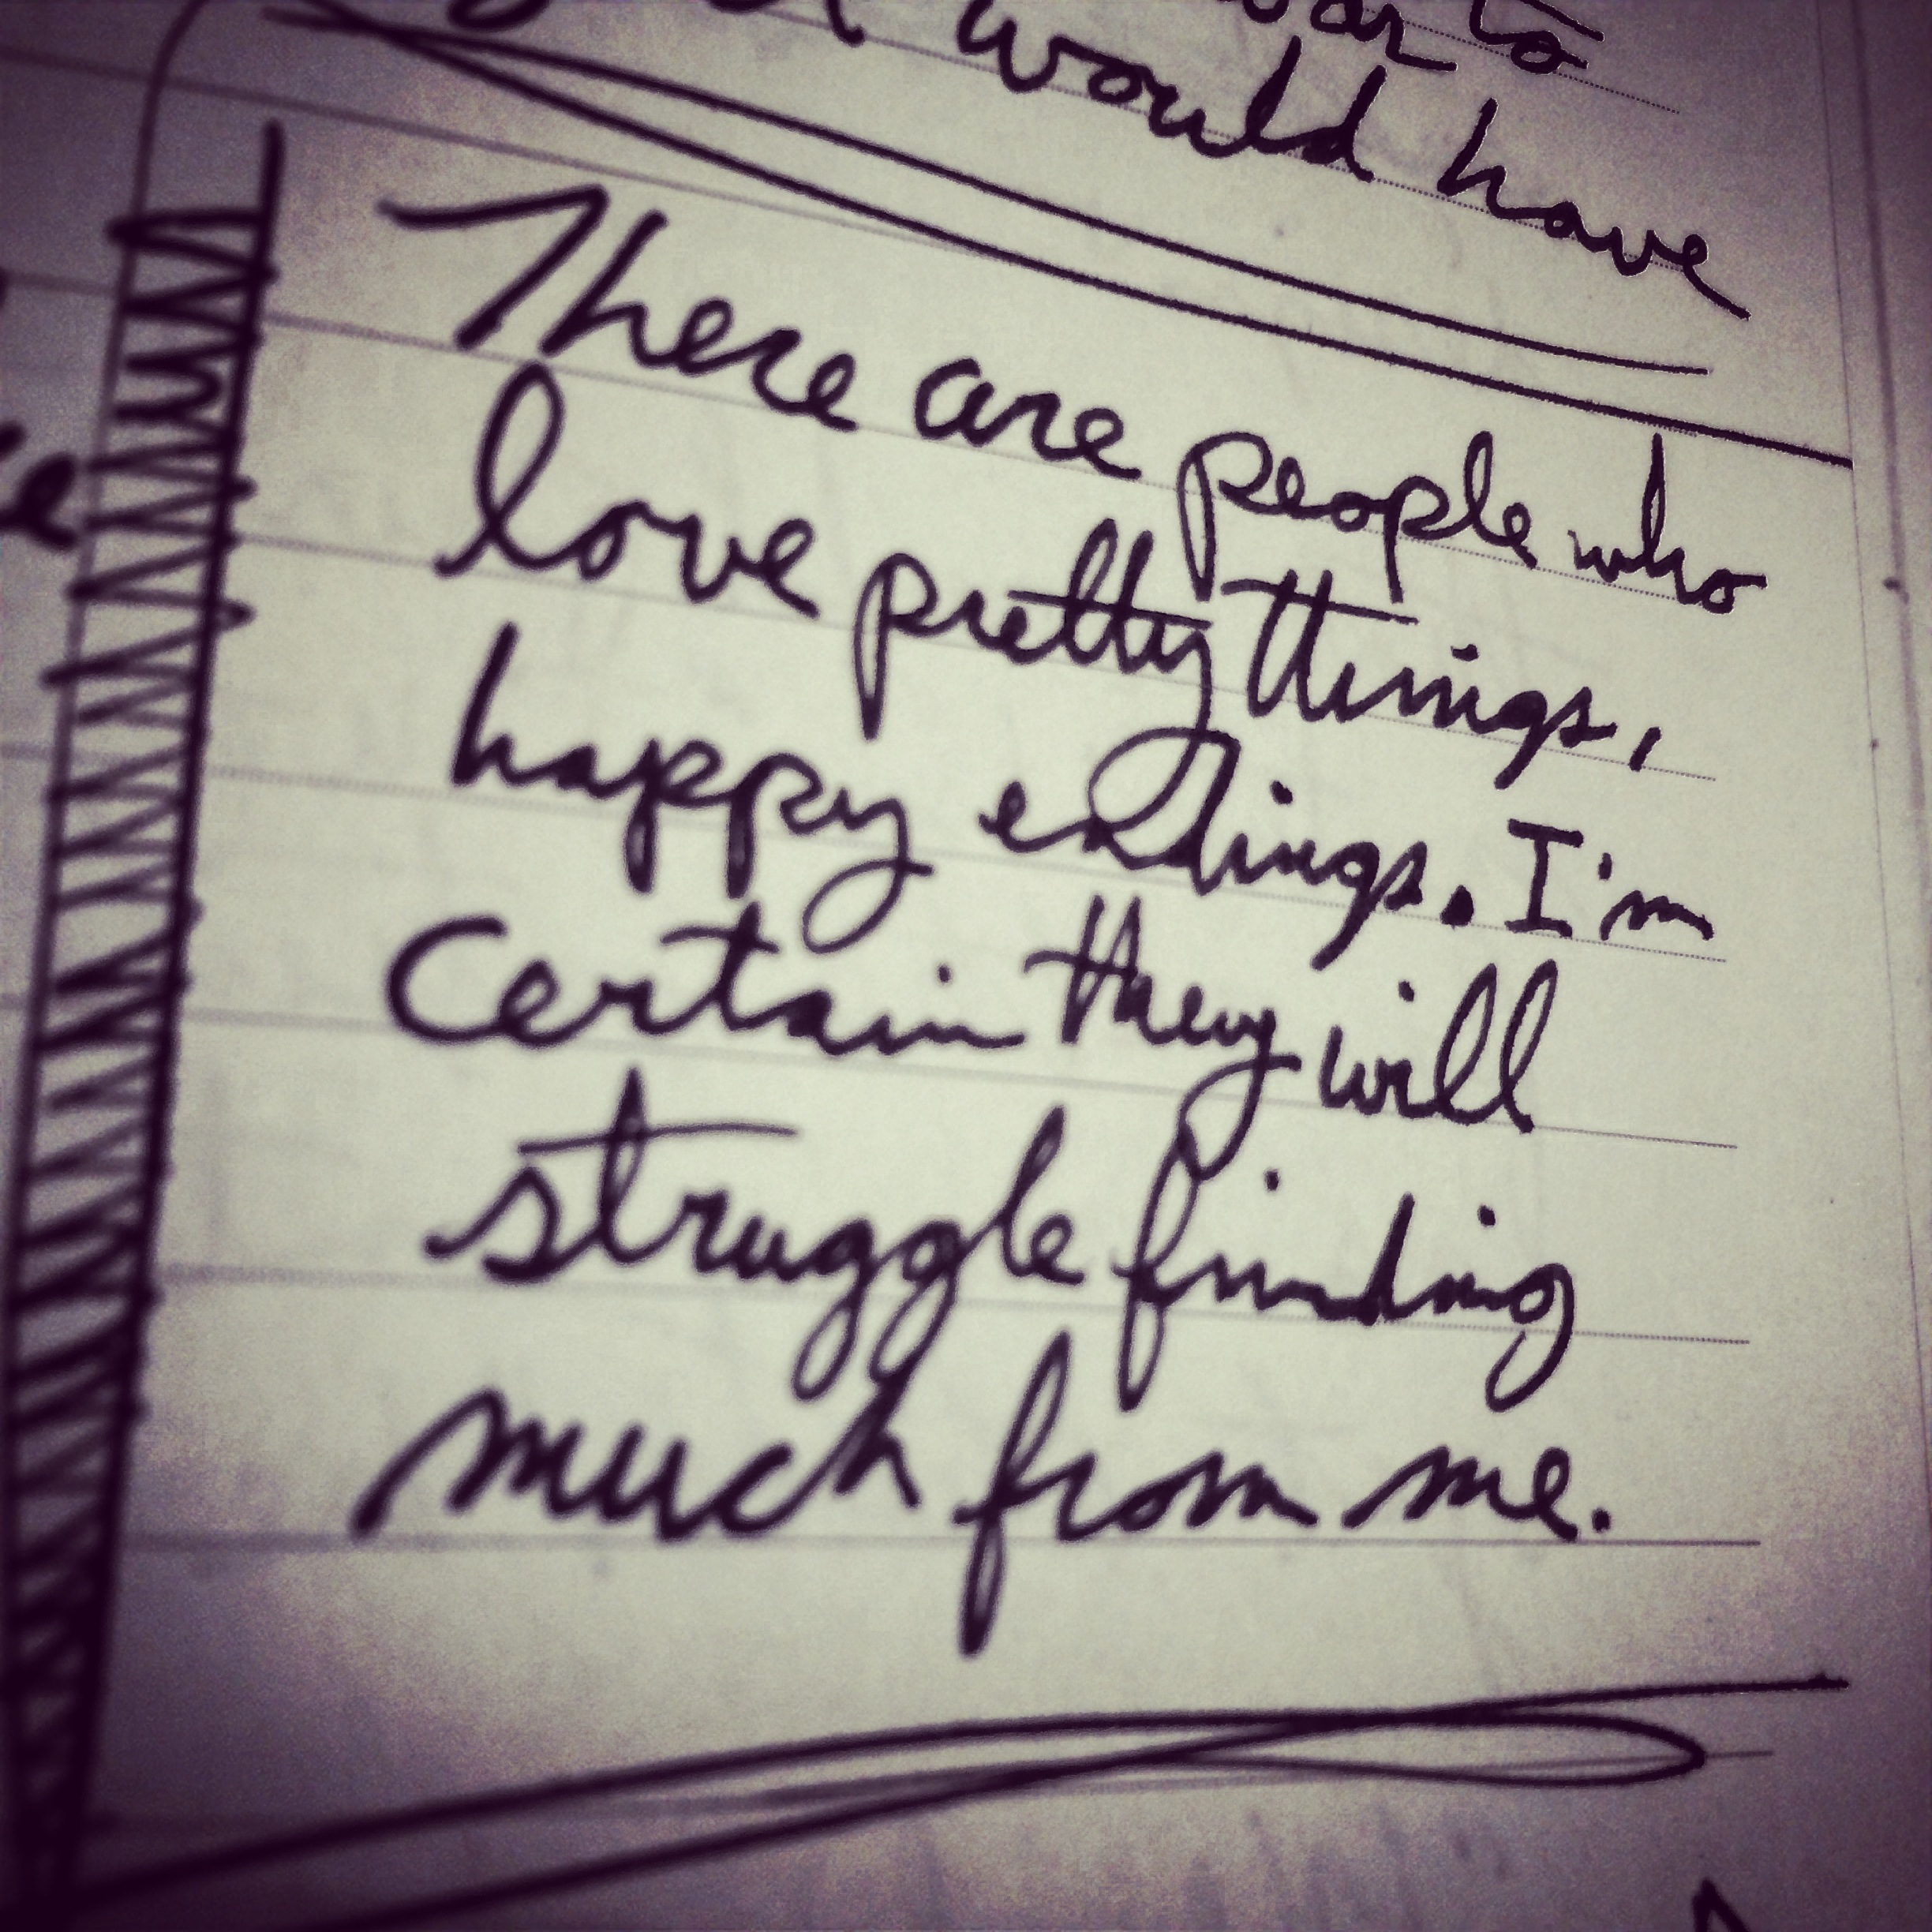 to
would have
There are people who
love pretty things,
happy endings. I'm
Certain they will
struggle finding
much from me.